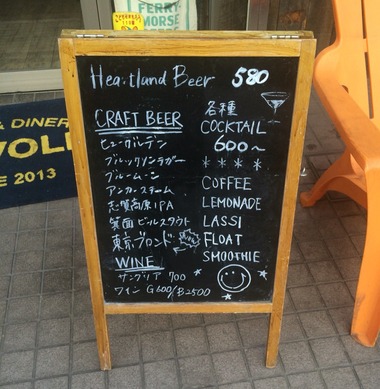 FERRY-
MORSE
Heartland Beer 580
CRAFT BEER
ヒューガルデン
ブルックリンラガー
ブルームーン
アンカースチーム
志賀高原IPA
箕面ビールスタウト
東京ブロンド
WINE
サングリア 700
ワイン G600/B2500
各種
COCKTAIL
600~
****
COFFEE
LEMONADE
LASSI
FLOAT
SMOOTHIE
& DINER
VOL
E 2013